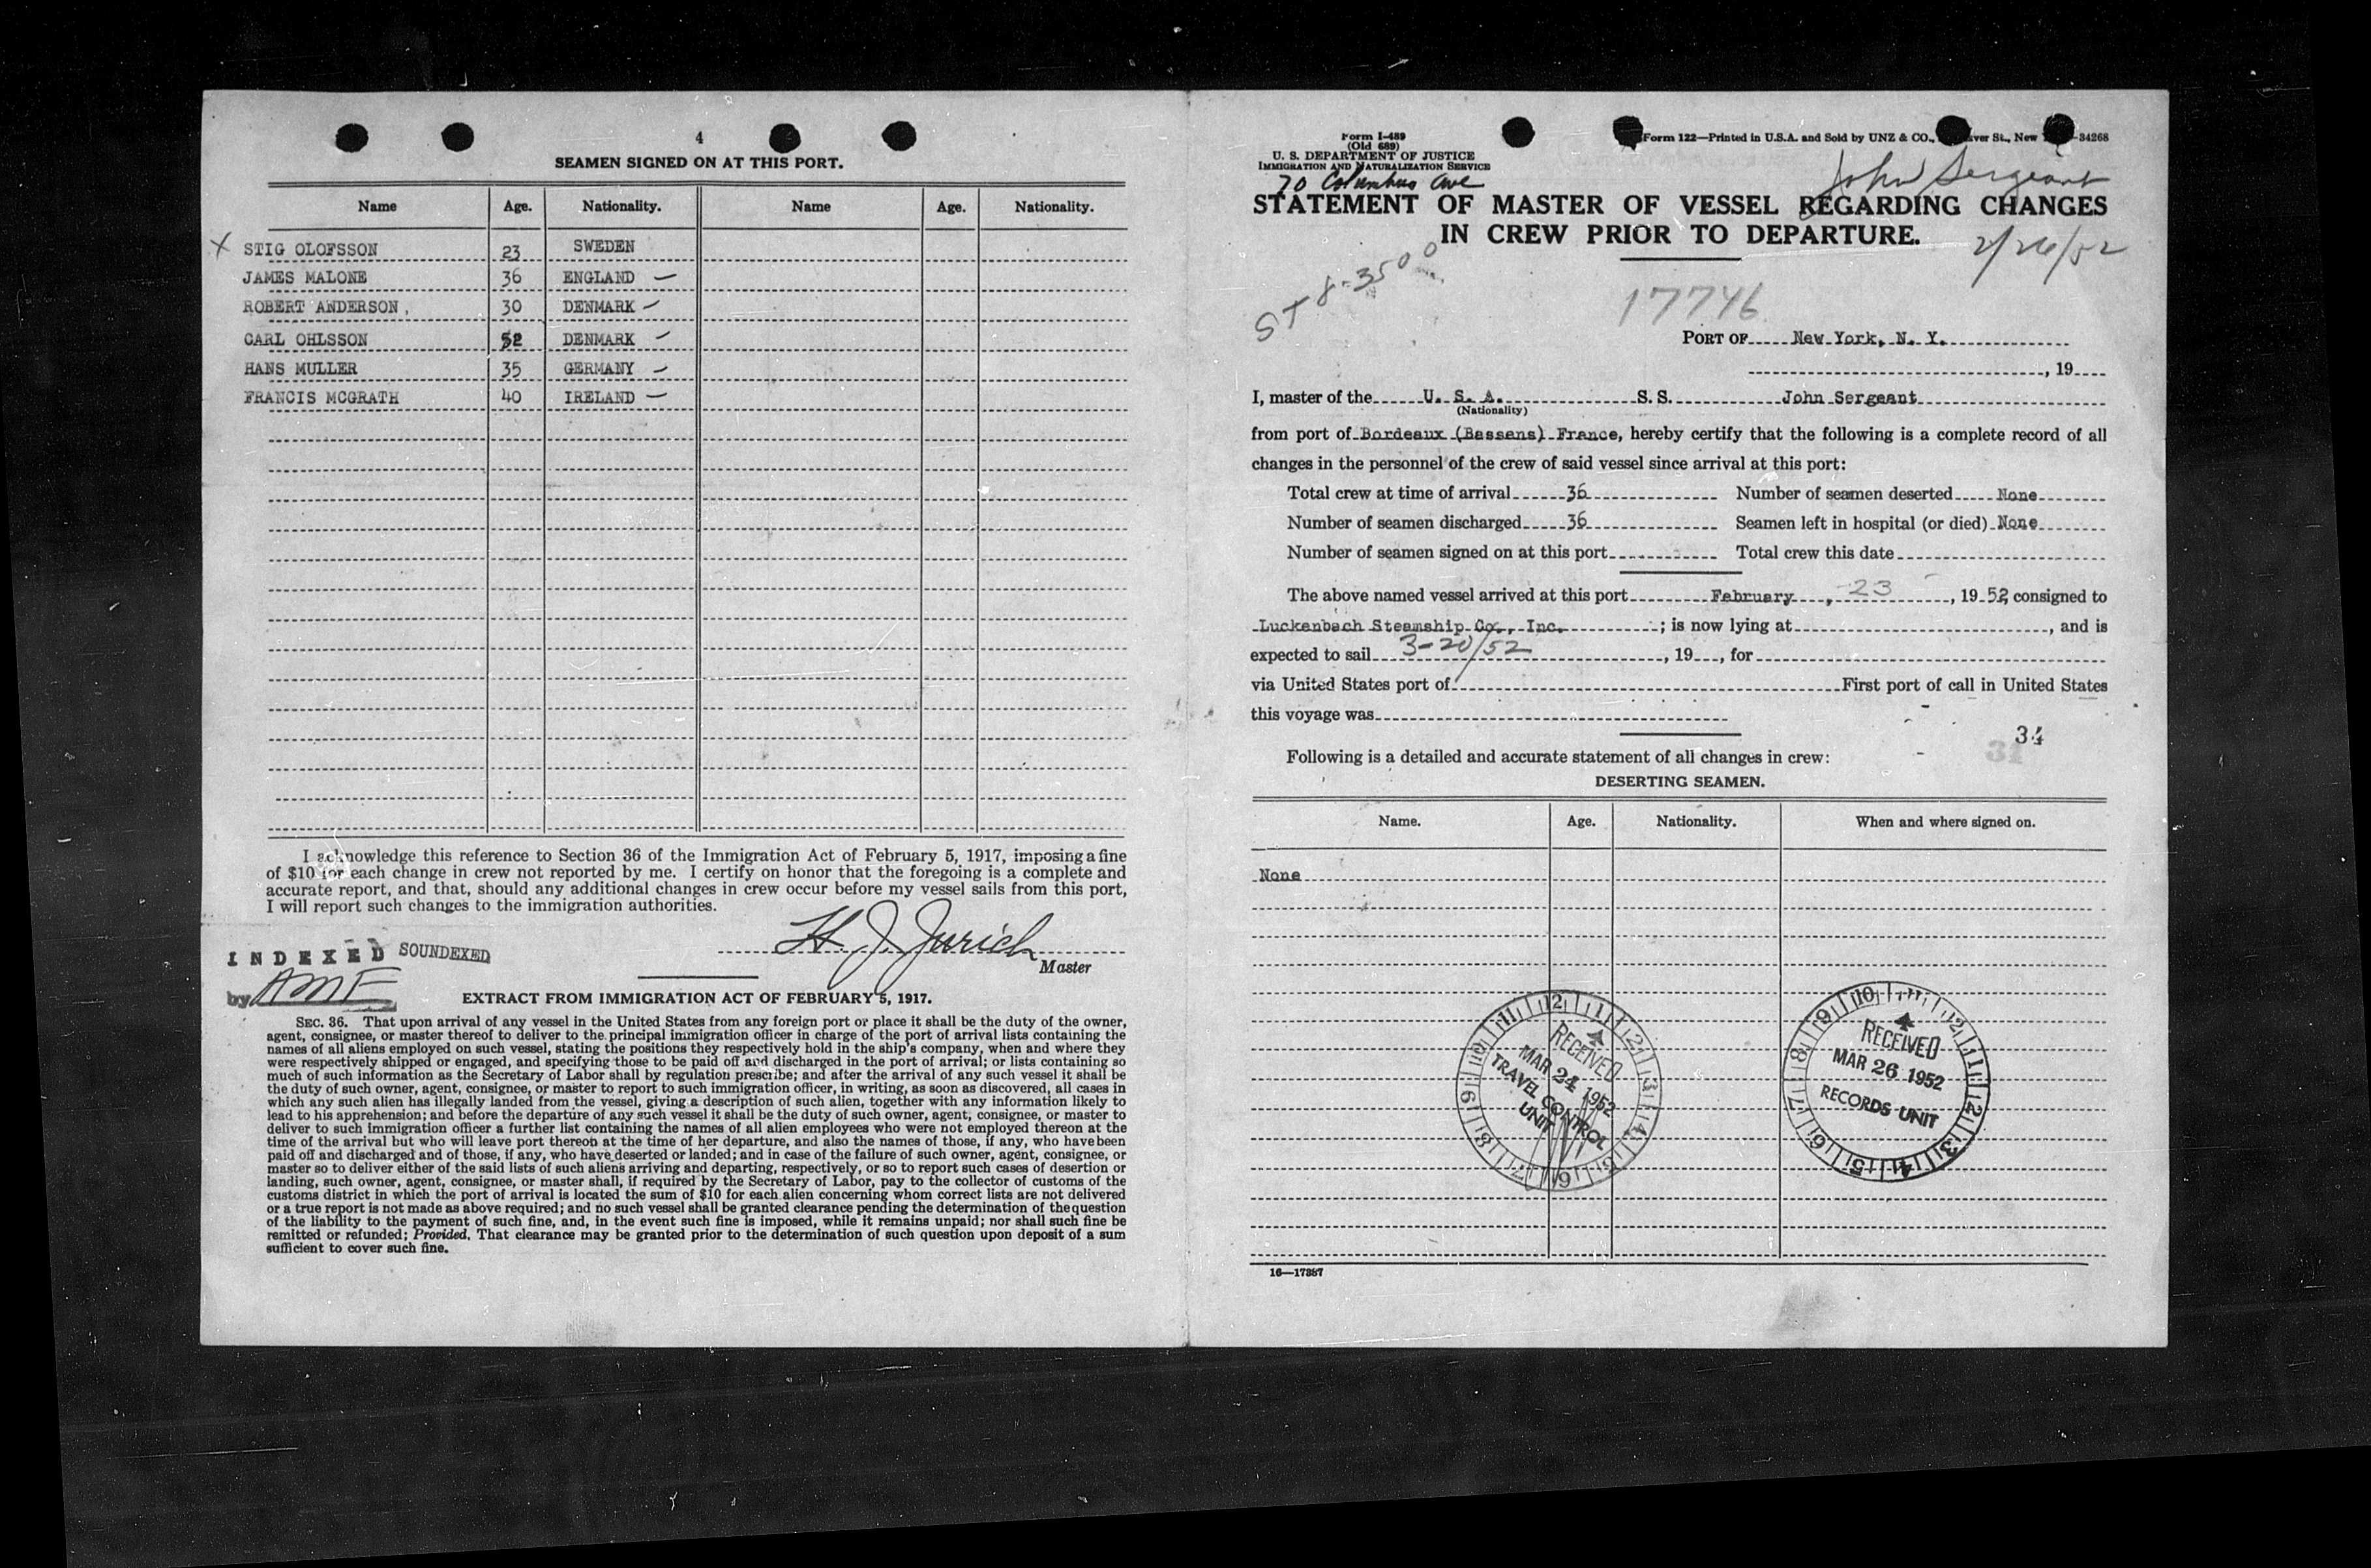 4
SEAMEN SIGNED ON AT THIS PORT.
Name Age. Nationality. Name Age. Nationality.
X STIG OLOFSSON 23 SWEDEN
JAMES MALONE 36 ENGLAND —
ROBERT ANDERSON, 30 DENMARK —
CARL OHLSSON 52 DENMARK —
HANS MULLER 35 GERMANY —
FRANCIS MCGRATH 40 IRELAND —
I acknowledge this reference to Section 36 of the Immigration Act of February 5, 1917, imposing a fine
of $10 for each change in crew not reported by me. I certify on honor that the foregoing is a complete and
accurate report, and that, should any additional changes in crew occur before my vessel sails from this port,
I will report such changes to the immigration authorities.
H. J. Jurich
Master
INDEXED SOUNDEXED
by AMF
EXTRACT FROM IMMIGRATION ACT OF FEBRUARY 5, 1917.
SEC. 36. That upon arrival of any vessel in the United States from any foreign port or place it shall be the duty of the owner,
agent, consignee, or master thereof to deliver to the principal immigration officer in charge of the port of arrival lists containing the
names of all aliens employed on such vessel, stating the positions they respectively hold in the ship's company, when and where they
were respectively shipped or engaged, and specifying those to be paid off and discharged in the port of arrival; or lists containing so
much of such information as the Secretary of Labor shall by regulation prescribe; and after the arrival of any such vessel it shall be
the duty of such owner, agent, consignee, or master to report to such immigration officer, in writing, as soon as discovered, all cases in
which any such alien has illegally landed from the vessel, giving a description of such alien, together with any information likely to
lead to his apprehension; and before the departure of any such vessel it shall be the duty of such owner, agent, consignee, or master to
deliver to such immigration officer a further list containing the names of all alien employees who were not employed thereon at the
time of the arrival but who will leave port thereon at the time of her departure, and also the names of those, if any, who have been
paid off and discharged and of those, if any, who have deserted or landed; and in case of the failure of such owner, agent, consignee, or
master so to deliver either of the said lists of such aliens arriving and departing, respectively, or so to report such cases of desertion or
landing, such owner, agent, consignee, or master shall, if required by the Secretary of Labor, pay to the collector of customs of the
customs district in which the port of arrival is located the sum of $10 for each alien concerning whom correct lists are not delivered
or a true report is not made as above required; and no such vessel shall be granted clearance pending the determination of the question
of the liability to the payment of such fine, and, in the event such fine is imposed, while it remains unpaid; nor shall such fine be
remitted or refunded; Provided, That clearance may be granted prior to the determination of such question upon deposit of a sum
sufficient to cover such fine.
Form I-489
(Old 689)
U. S. DEPARTMENT OF JUSTICE
IMMIGRATION AND NATURALIZATION SERVICE
Form 122—Printed in U.S.A. and Sold by UNZ & CO., ver St., New -34268
70 Columbus Ave
John Sergeant
STATEMENT OF MASTER OF VESSEL REGARDING CHANGES
IN CREW PRIOR TO DEPARTURE.
2/26/52
ST 8-3500
17746
PORT OF New York, N. Y.
, 19
I, master of the U. S. A. S. S. John Sergeant
(Nationality)
from port of Bordeaux (Bassens) France, hereby certify that the following is a complete record of all
changes in the personnel of the crew of said vessel since arrival at this port:
Total crew at time of arrival 36 Number of seamen deserted None
Number of seamen discharged 36 Seamen left in hospital (or died) None
Number of seamen signed on at this port Total crew this date
The above named vessel arrived at this port February, 23, 1952, consigned to
Luckenbach Steamship Co., Inc. ; is now lying at , and is
expected to sail 3-20/52 , 19 , for
via United States port of First port of call in United States
this voyage was
34
31
Following is a detailed and accurate statement of all changes in crew:
DESERTING SEAMEN.
Name. Age. Nationality. When and where signed on.
None
RECEIVED
MAR 24 1952
TRAVEL CONTROL
UNIT
RECEIVED
MAR 26 1952
RECORDS UNIT
16—17387